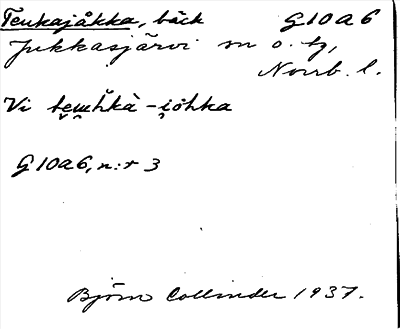 Teukajåkka, bäck G10a6
Jukkasjärvi sn o. tg,
Norrb. l.
Vi
G10a6, n:r 3
Björn Collinder 1937.